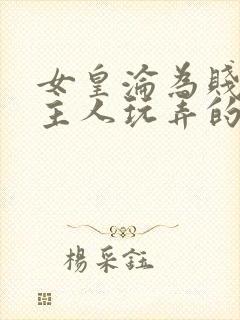 女皇淪為賤
主人玩弄的
楊采鈺